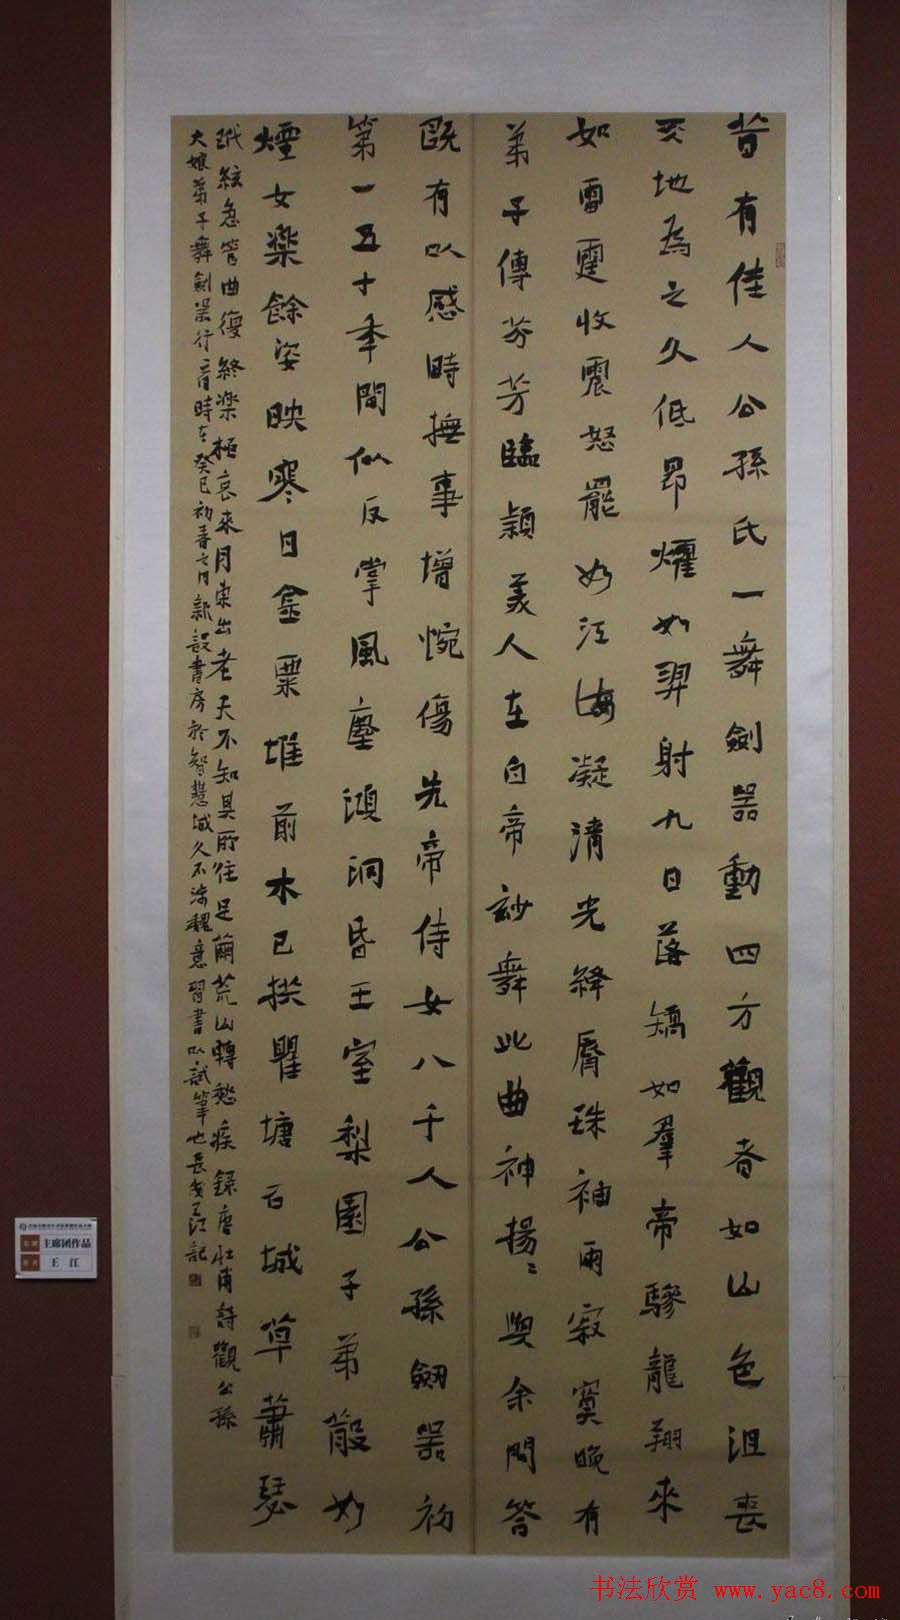 昔有佳人公孫氏一舞劍器動四方觀者如山色沮喪
天地為之久低昂㸌如羿射九日落矯如羣帝驂龍翔來
如雷霆收震怒罷如江海凝清光絳脣珠袖兩寂寞晚有
弟子傳芬芳臨潁美人在白帝玅舞此曲神揚〻與余問答
既有以感時撫事增惋傷先帝侍女八千人公孫劒器初
第一五十年間似反掌風塵澒洞昏王室梨園子弟散如
煙女樂餘姿映寒日金粟堆前木已拱瞿塘石城草蕭瑟
玳絃急管曲復終樂極哀來月東出老夫不知其所往足繭荒山轉愁疾錄唐杜甫詩觀公孫
大娘弟子舞劍器行一首時在癸巳初春之月新設書房於智慧城久不染翰意習書以試筆也長安王江記
主席团作品
王 江
书法欣赏 www.yac8.com